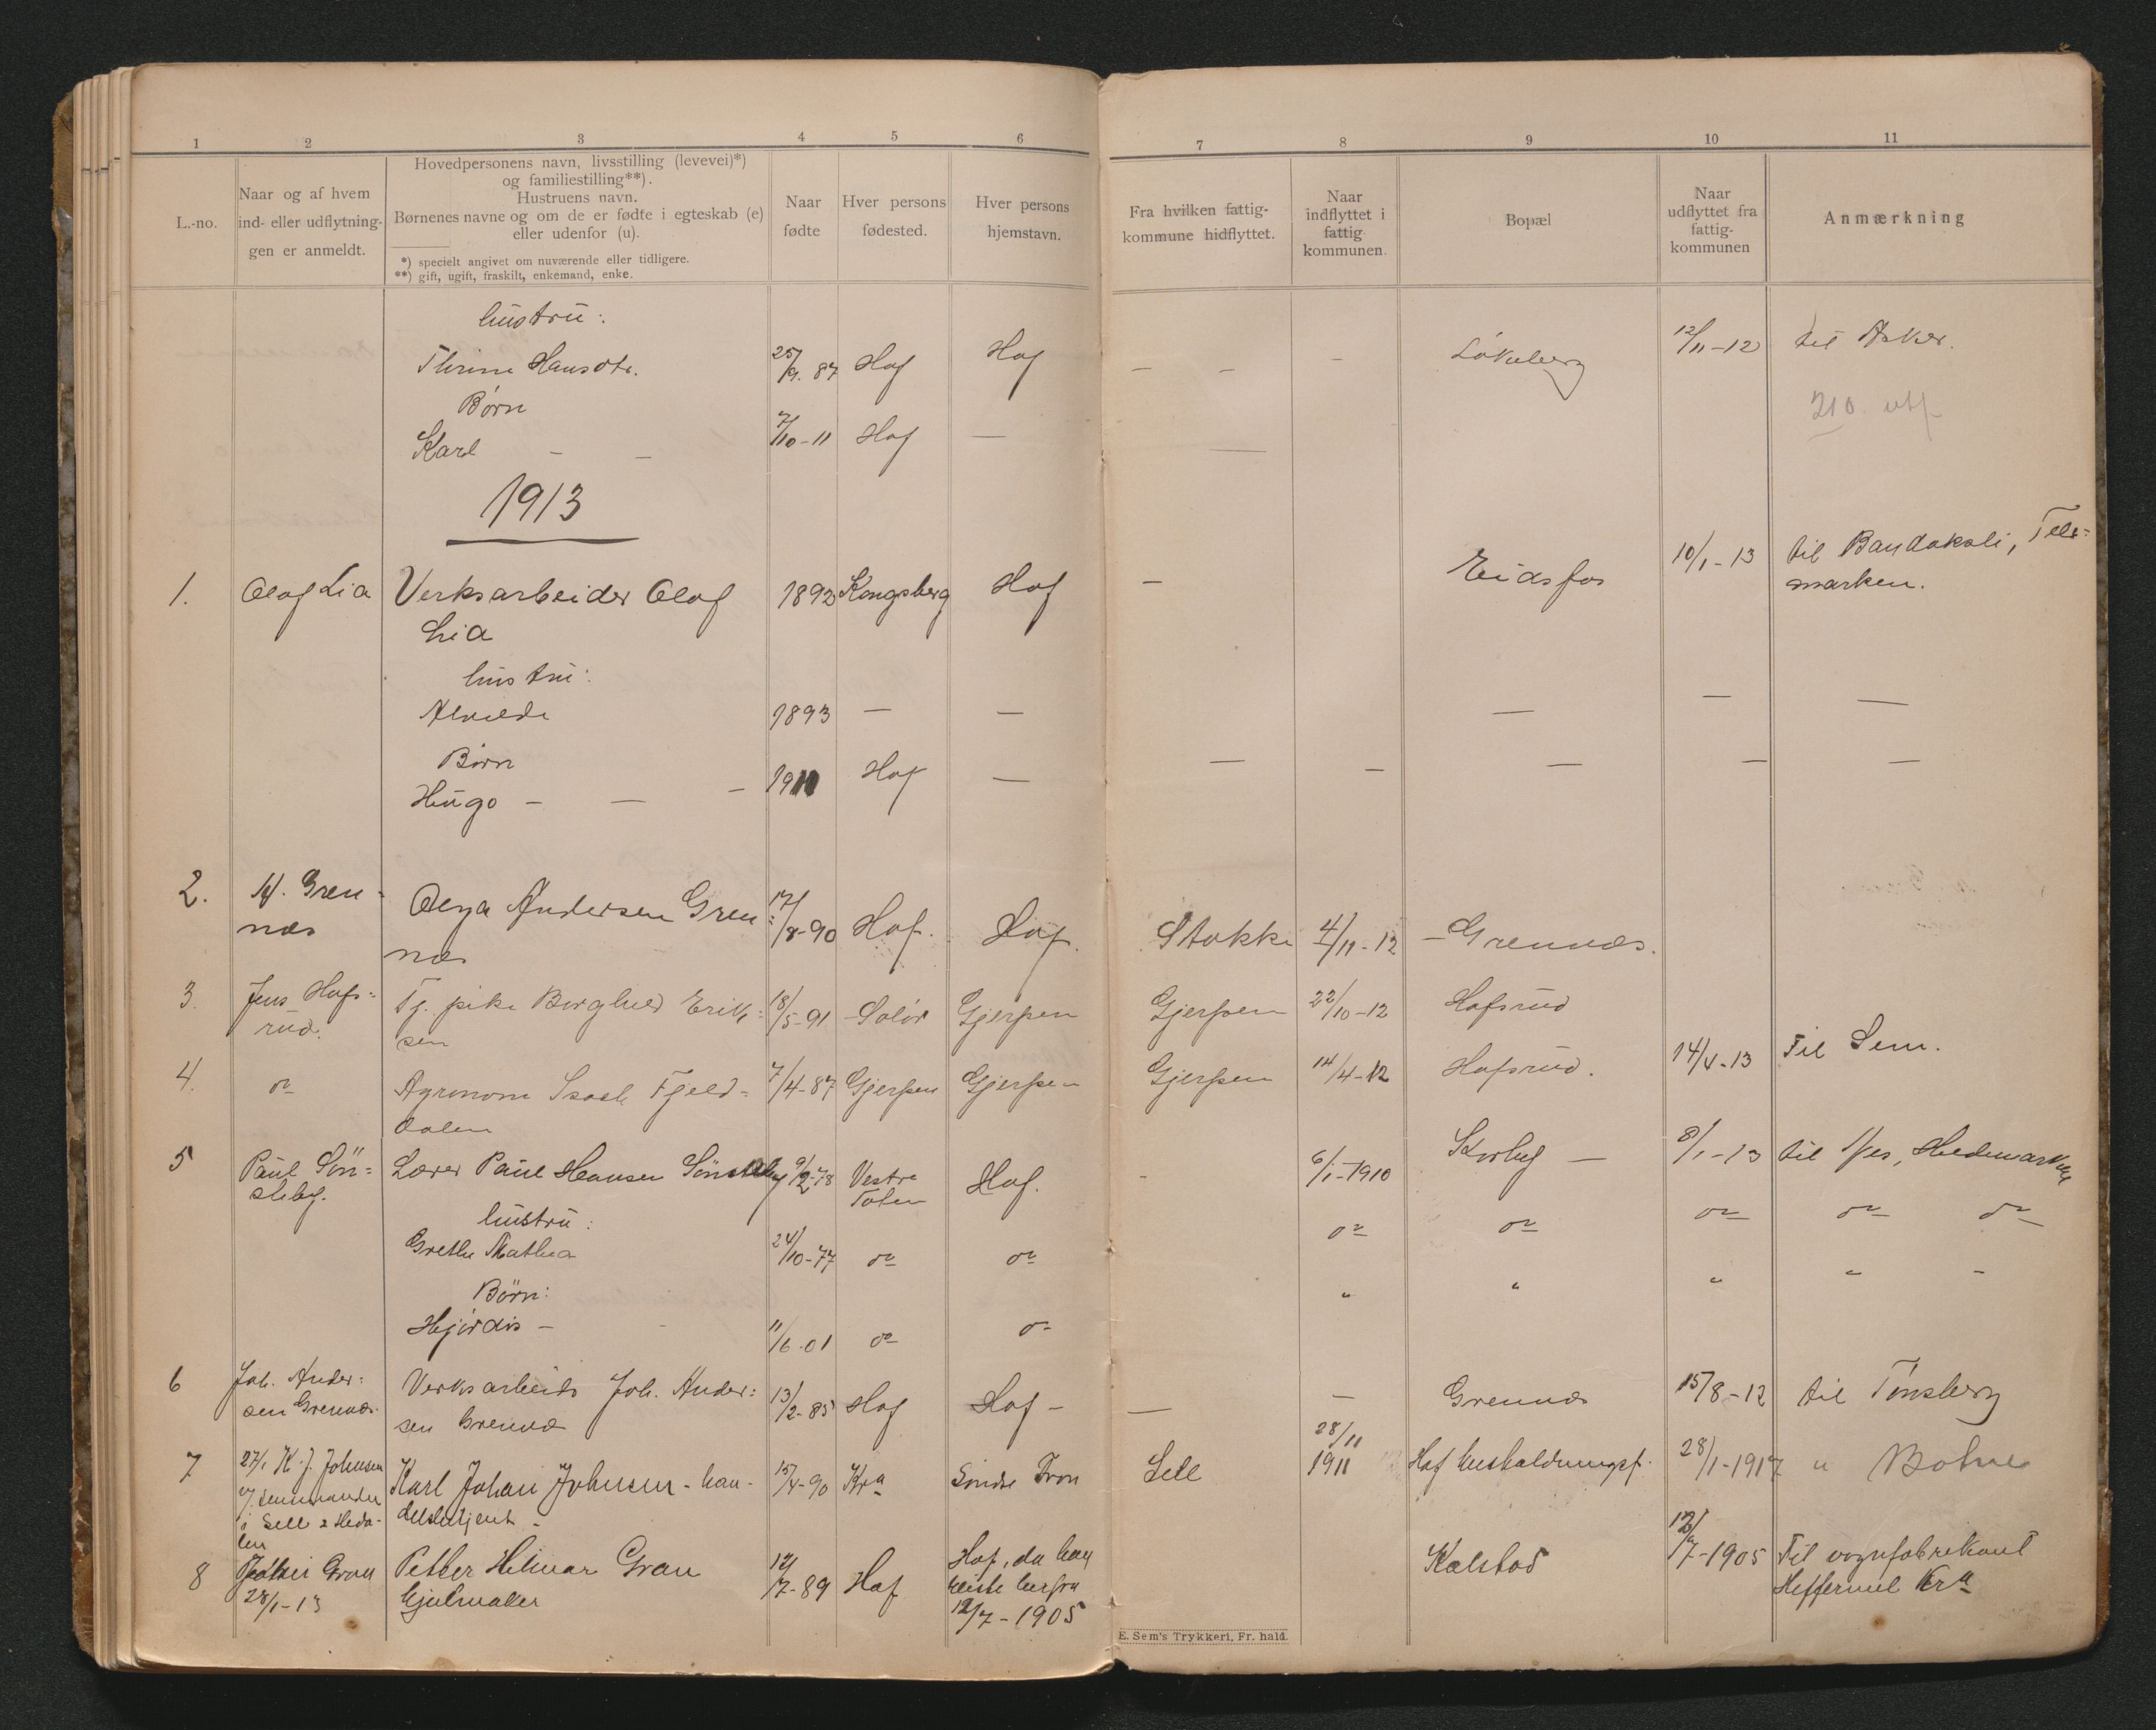 1 2 3 4 5 6 7 8 9 10 11
L.-no.
Naar og af hvem
ind- eller udflytning-
gen er anmeldt.
Hovedpersonens navn, livsstilling (levevei)*)
og familiestilling**).
Hustruens navn.
Børnenes navne og om de er fødte i egteskab (e)
eller udenfor (u).
*) specielt angivet om nuværende eller tidligere.
**) gift, ugift, fraskilt, enkemand, enke.
Naar
fødte
Hver persons
fødested.
Hver persons
hjemstavn.
Fra hvilken fattig-
kommune hidflyttet.
Naar
indflyttet i
fattig
kommunen.
Bopæl
Naar
udflyttet fra
fattig-
kommunen
Anmærkning
hustru:
Thrine Hansdtr. 25/9. 87 Hof Hof — — — 12/11-12 til Asker.
Børn
210 utf
Karl — — 7/10-11 Hof — —
1913
1. Olaf Lia Verksarbeider Olaf 1892 Kongsberg Hof — Eidsfos 10/1-13 til Bandaksli, Tele=
Lia marken.
hustru:
Alvilde 1893 — — — — —
Børn
Hugo — — — 1911 Hof — — — — — —
2. M. Gren= Olga Andersen Gren= 17/8-90 Hof. Hof. Stokke 4/11-12 — Grennæs.
næs næs
3. Jens Hofs= Tj. pike Borghild Erik= 18/5-91 Solør Gjerpen Gjerpen 22/10-12 Hofsrud
rud. sen
4. do Agronom Isach Fjeld= 7/4-87 Gjerpen Gjerpen Gjerpen 14/4-12 Hofsrud. 14/4-13 Til Sem.
dalen
5 Paul Sön= Lærer Paul Hansen Sönsteby 9/2-78 Vestre Hof. 6/1-1910 Kirkeby — 8/1-13 til Nes, Hedemarken
steby. Toten
hustru:
Grethe Mathea 24/10-77 do do do do do do do
Börn:
Hjördis — 11/6-01 do do " " " " -
6 Joh. Ander= Verksarbeider Joh. Ander= 13/2-85 Hof Hof — — — Grennæs 15/8-12 til Tönsberg
sen Grennæs. sen Grennæs
7 27/1 K. J. Johnsen Karl Johan Johnsen - han- 15/4-90 Kra Söndre Fron Sell 28/11 1911 Hof husholdningsf. 28/1-1917 " Botne
v/ lensmanden delsbetjent -
i Sell & Heda-
len
8 Petter Gran Petter Hilmar Gran 12/7-89 Hof Hof, da han Kalstad 12/7-1905 Til vognfabrikant
28/1-13 Hjulmaker reiste herfra Heffermel Kra
12/7-1905
E. Sem's Trykkeri, Fr. hald.